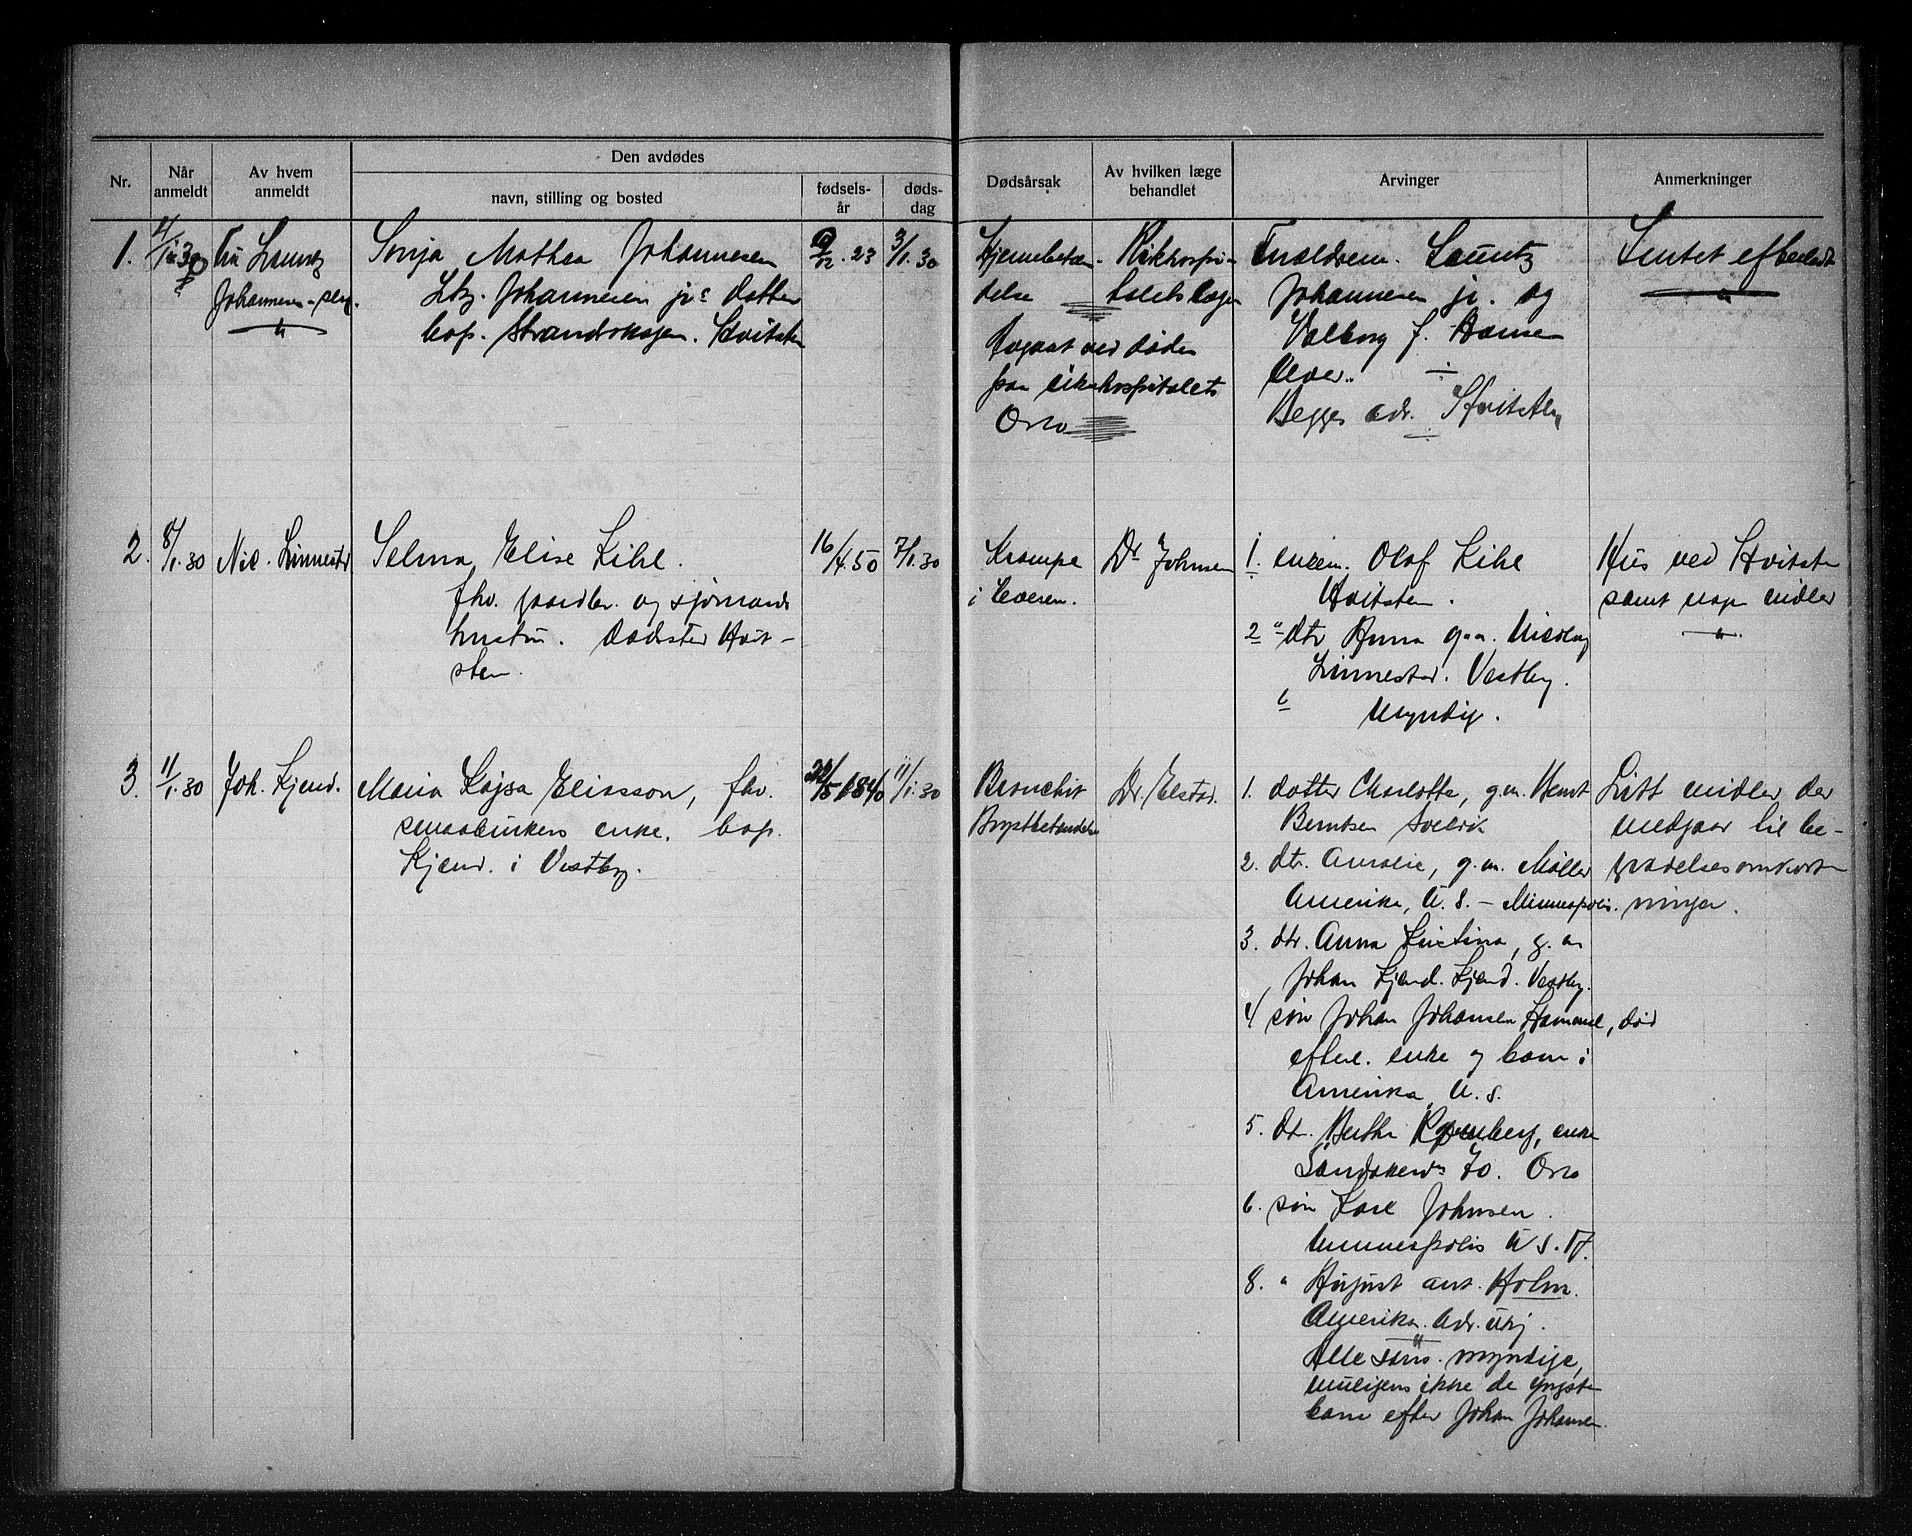 Nr.
Når
anmeldt
Av hvem
anmeldt
Den avdødes
navn, stilling og bosted
fødsels-
år
døds-
dag
Dødsårsak
Av hvilken læge
behandlet
Arvinger
Anmerkninger
1.
Johannesen
Sonja Mathea Johannesen
Johannesen jr's datter
bop. Hvitsten
23
3/1.30
Hjernebetæn-
delse
Avgaat ved døden
paa rikshospitalet
Oslo
Rikshospi-
talets læger
Forældrene. Lauritz
Johannesen jr. og
Valborg f. Hansen
Begges adr. Hvitsten
Intet efterladt
2.
8/1.30
Nic. Linnestad
Selma Elise Kihl.
fhv. og sjømands
hustru. Hvit-
sten.
16/4.50
7/1.30
Krampe
i
Dr Johnsen
1. enkem. Olaf Kihl
Hvitsten.
2 dtr Anna g.m. Nicolay
Linnestad. Vestby.
Myndig.
Hus ved Hvitsten
samt midler
3.
11/1.30
Joh. Kjend.
Maria Kajsa Eliasson, fhv.
smaabrukers enke. bop.
Kjend. i Vestby.
/5 1840
11/1.30
Bronchit
Brystbetændelse
Dr. Elstad.
1. datter Charlotte, g.m. Bernt
Berntsen Svelvik
2. dtr. Amalie, g.m. Møller
Amerika, U.S. – Minneapolis.
3. dtr. Anna Kristina, g.m
Johan Kjend. Kjend. Vestby.
4 søn Johan Johansen, død
efterl. enke og barn i
Amerika U.S.
5. dt. Berthe enke
70. Oslo
6. søn Karl Johnsen.
Minneapolis U.S.
8. " August ant. Holm.
Amerika. adr. ubj.
Alle myndige,
muligens ikke de yngste
barn efter Johan Johansen.
Litt midler der
medgaar til be-
gravelsesomkost-
ninger.